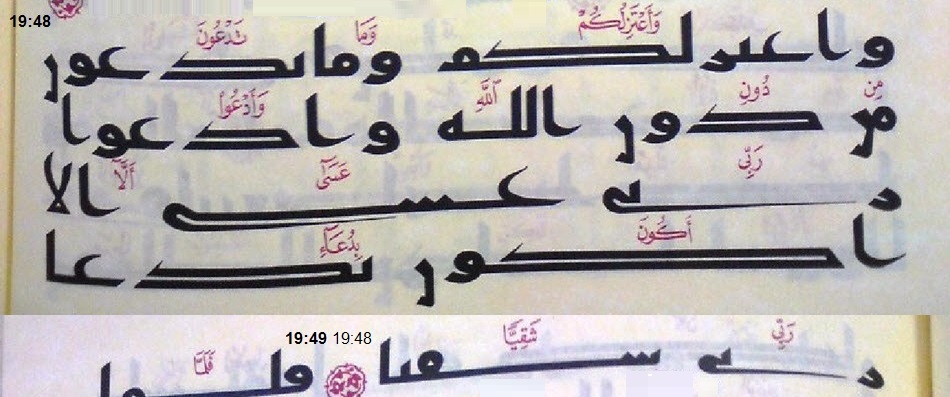 19:48
وَأَعْتَزِلُكُمْ وَمَا تَدْعُونَ
واعتزلكم وما تدعون
مِن دُونِ ٱللَّهِ وَأَدْعُوا۟
من دون الله وادعوا
رَبِّى عَسَىٰٓ أَلَّآ
ربى عسى الا
أَكُونَ بِدُعَآءِ
اكون بدعا
19:49 19:48
رَبِّى شَقِيًّا فَلَمَّا
ربى شقيا فلما